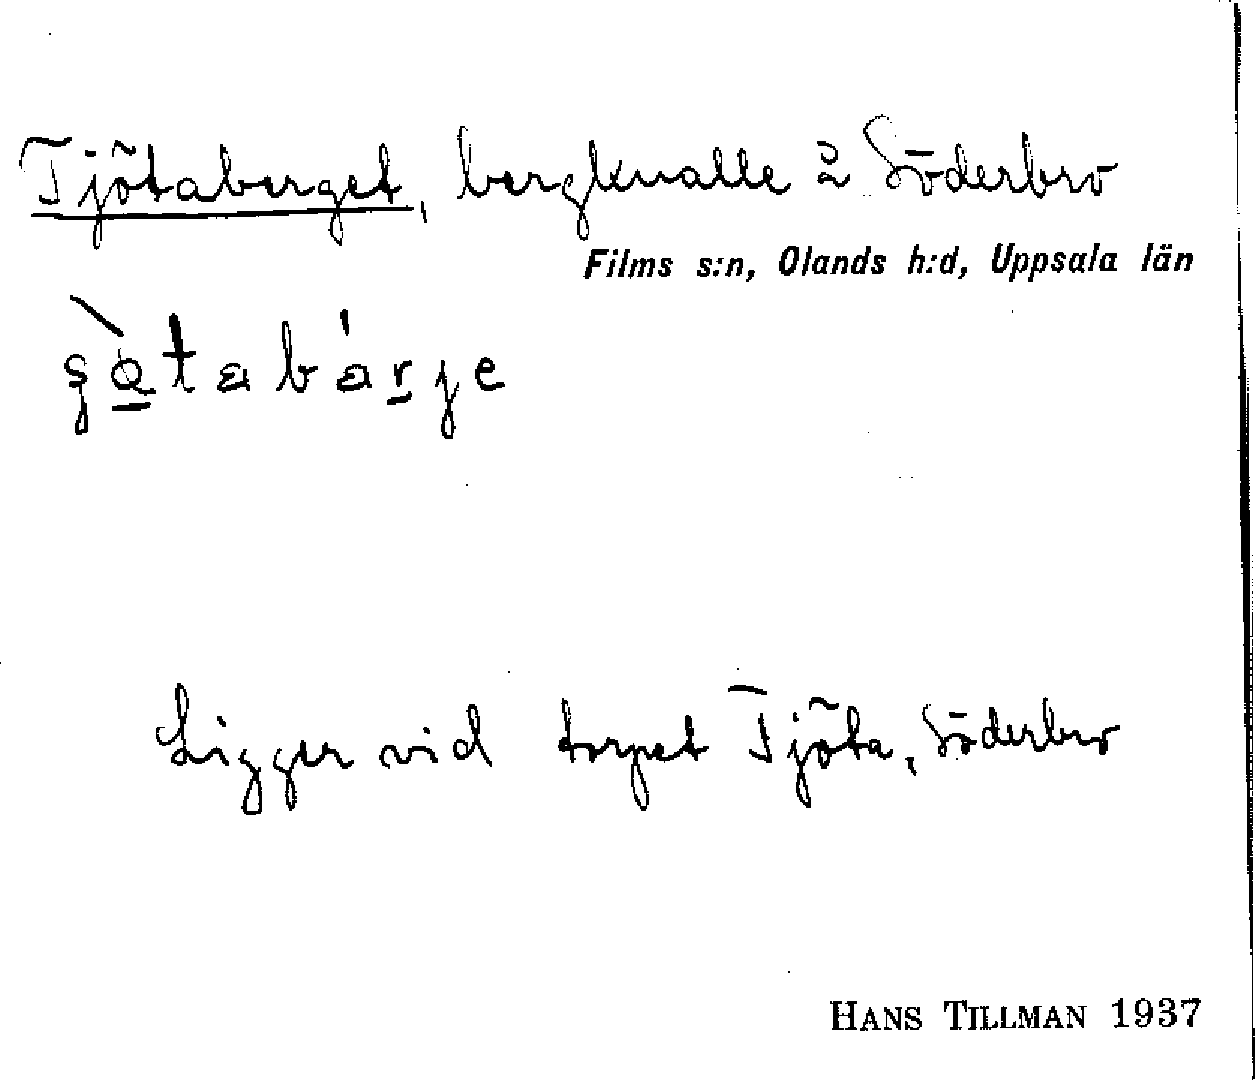 Tjötaberget, bergknalle å Söderbro
Films s:n, Olands h:d, Uppsala län
Ligger vid torpet Tjöta, Söderbro
HANS TILLMAN 1937